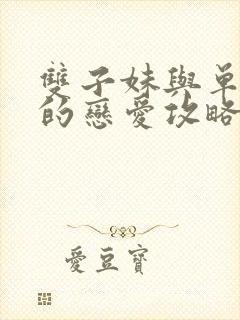 雙子妹與單
的戀愛攻略
愛豆寶